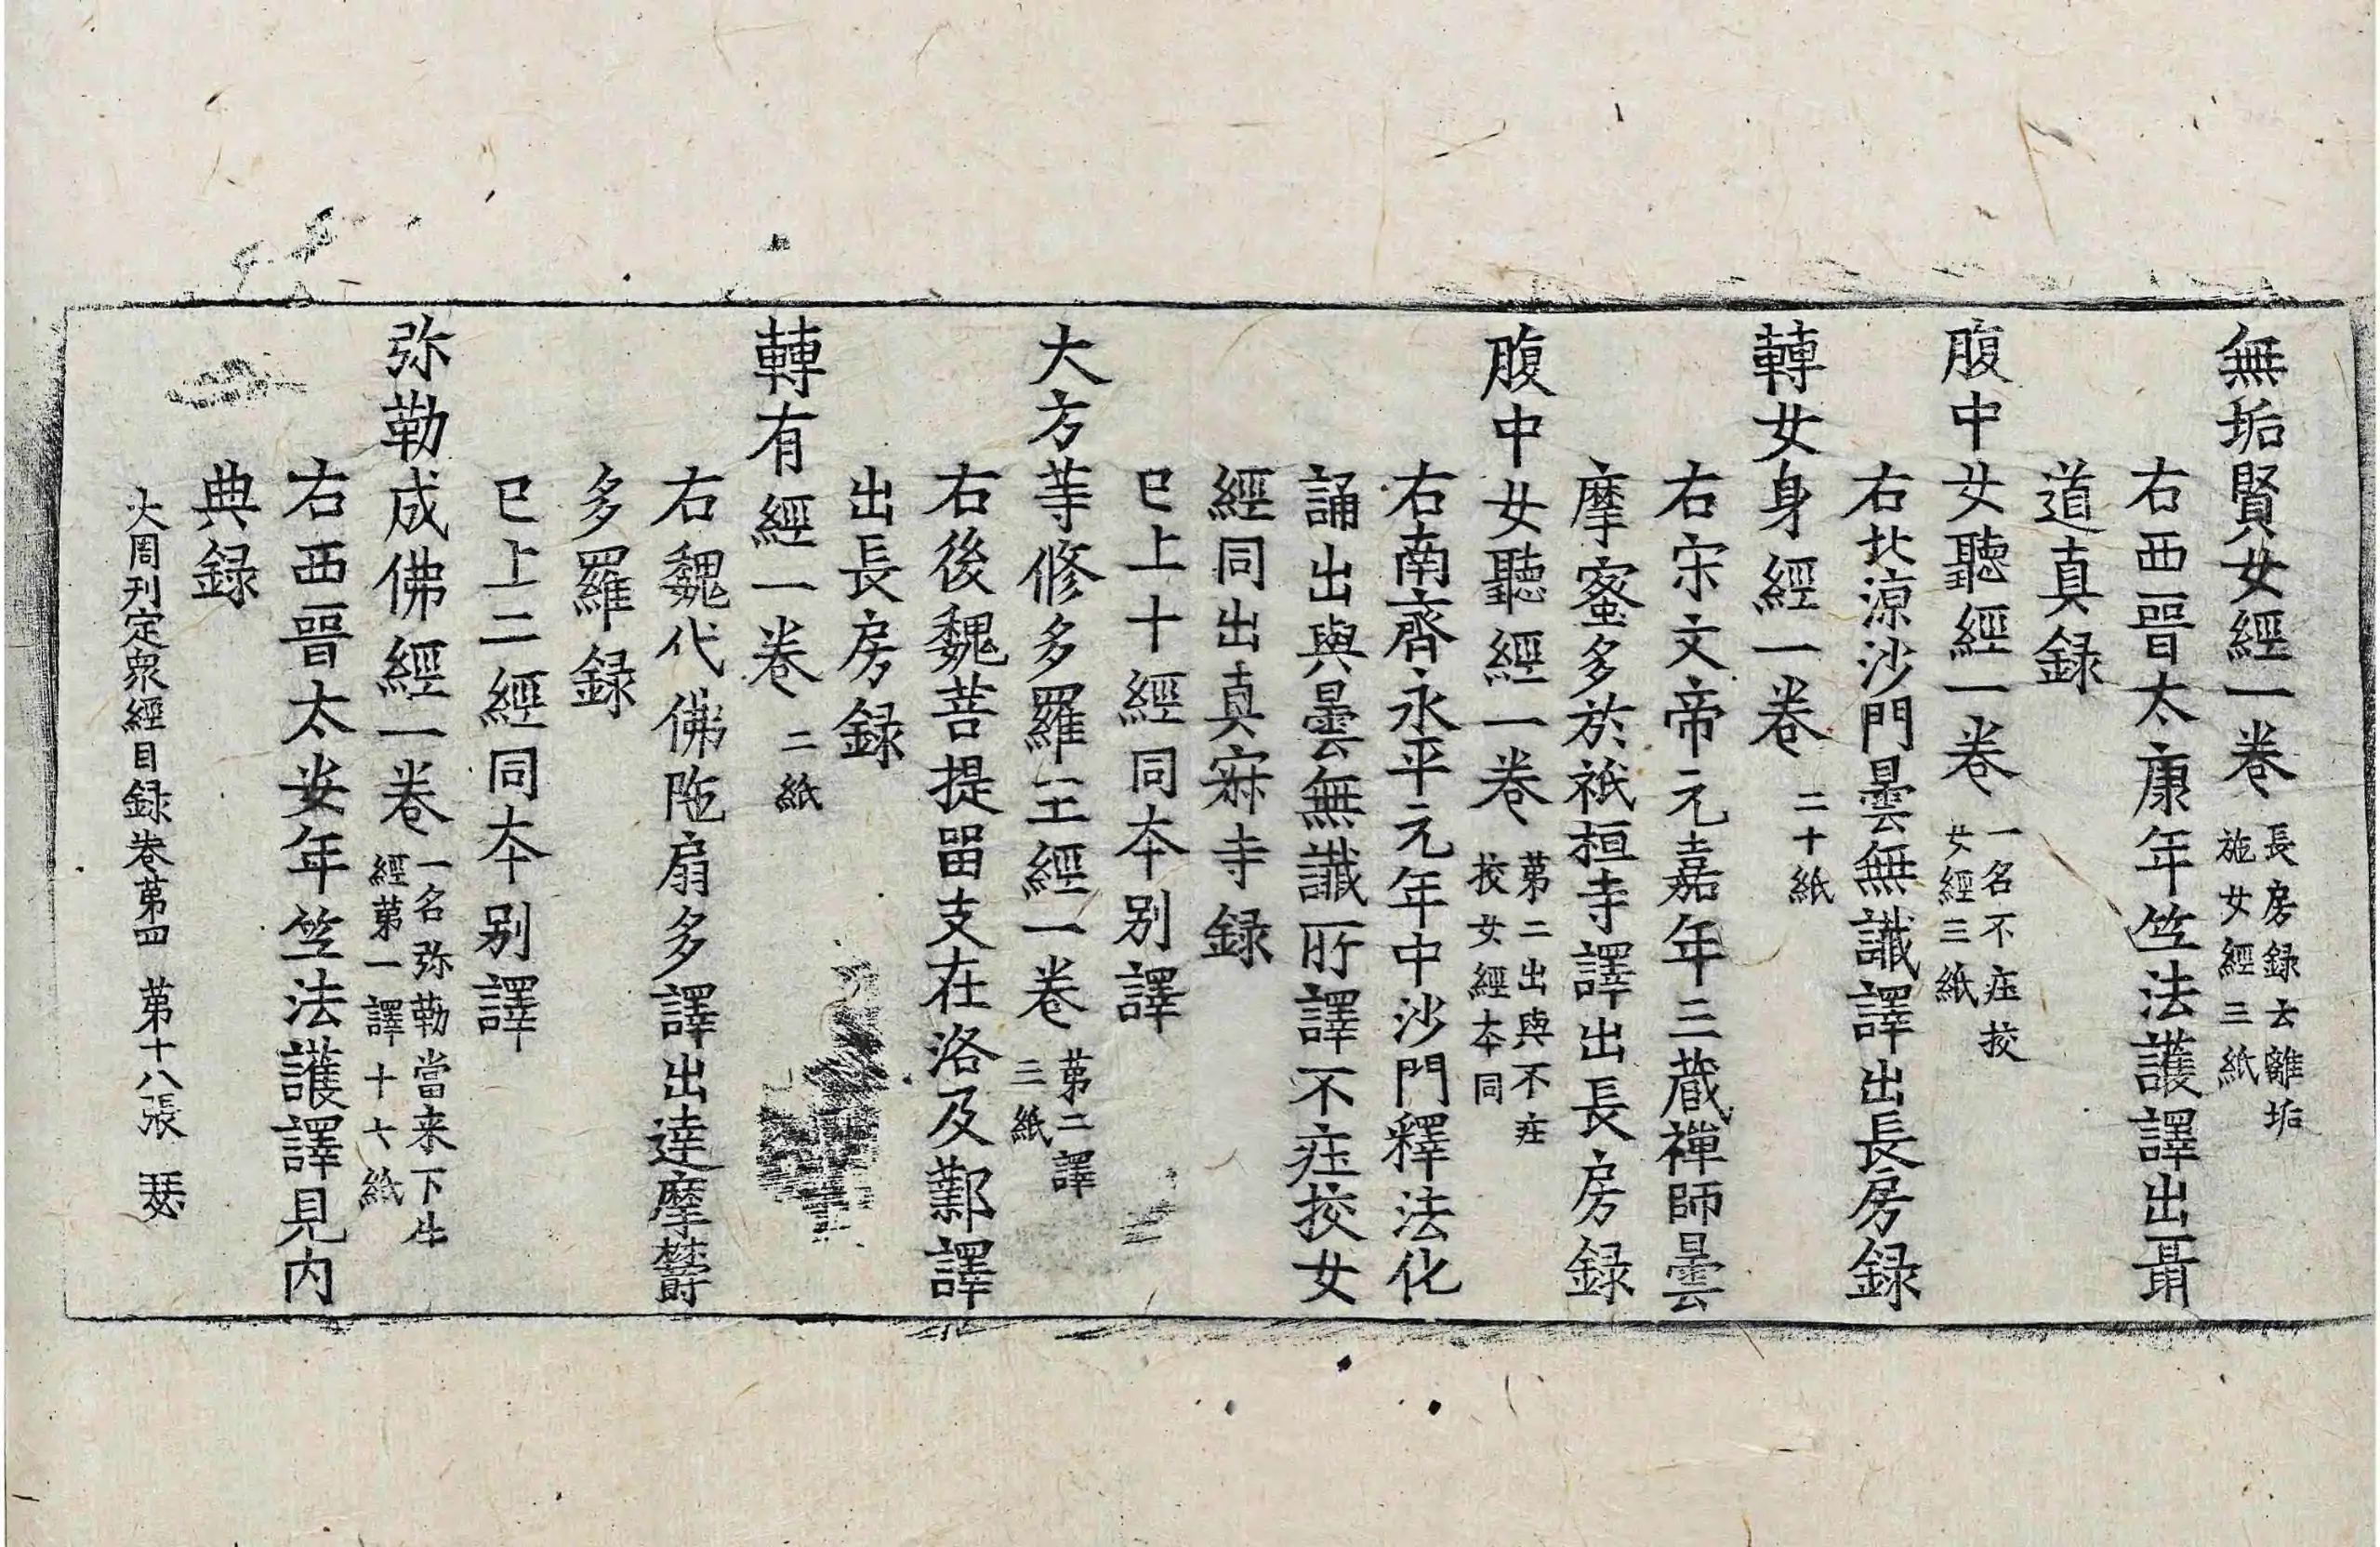 無垢賢女經一卷 長房録云離垢施女經三紙
右西晉太康年竺法護譯出聶
道真録
腹中女聽經一卷 一名不㽵挍女經三紙
右北涼沙門曇無讖譯出長房録
轉女身經一卷 二十紙
右宋文帝元嘉年三藏禪師曇
摩蜜多於祇桓寺譯出長房録
腹中女聽經一卷 第二出與不㽵挍女經本同
右南齊永平元年中沙門釋法化
誦出與曇無讖所譯不㽵挍女
經同出真寂寺録
已上十經同本别譯
大方等修多羅王經一卷 第二譯三紙
右後魏菩提留支在洛及鄴譯
出長房録
轉有經一卷 二紙
右魏代佛陁扇多譯出達摩欝
多羅録
已上二經同本别譯
弥勒成佛經一卷 一名弥勒當来下生經第一譯十六紙
右西晉太安年竺法護譯見内
典録
大周刊定衆經目録卷第四 第十八張 瑟